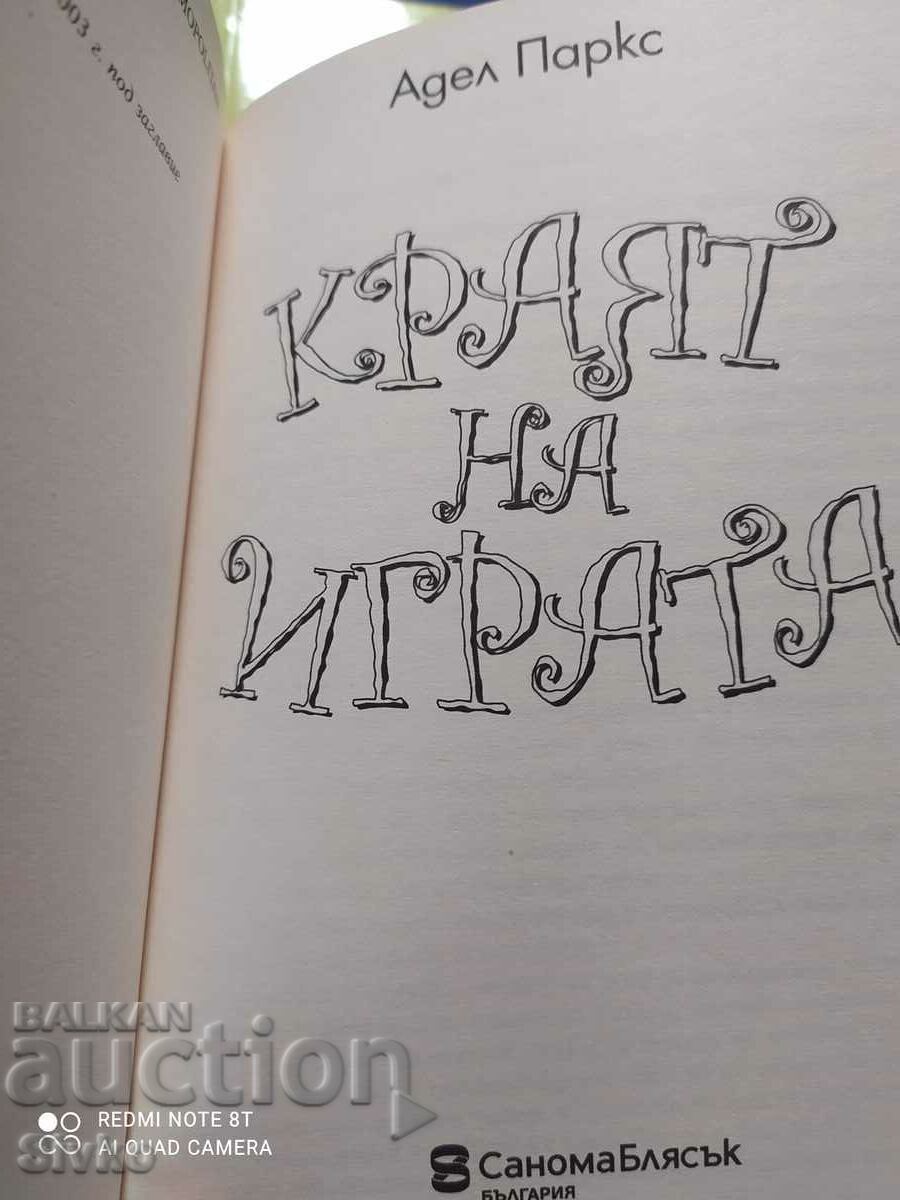 2003 г. под заглавие
Адел Паркс
КРАЯТ
НА
ИГРАТА
BALKAN
auction
REDMI NOTE 8T
AI QUAD CAMERA
Sivko
СаномаБлясък
БЪЛГАРИЯ